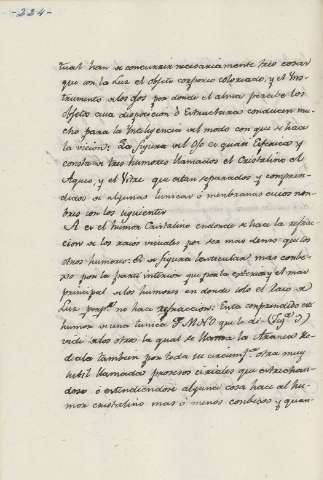 -224-
tual han de concurrir necesariamente tres cosas
que son la Luz el objeto corporeo coloreado, y el Ins-
trumento de los ojos por donde el alma percibe los
objetos cuia disposicion ó Estructura conducen mu-
cho para la Inteligencia del modo con que se hace
la vicion: La figura del Ojo es quasi Esferica y
consta de tres humores llamados el Cristalino el
Aqueo, y el Vitreo que estan separados y compreen-
didos de algunas tunicas ó menbranas cuios nom-
bres son los siguientes
A es el húmor Cristalino endonde se hace la refrac-
cion de los raios visuales por ser mas denso que los
otros humores: Es de figura lenticular, mas conbe-
xo por la parte interior que por la exterior y el mas
principal de los humores en donde solo el raio de
Luz perp.r no hace refraccion: Esta comprendido este
humor de una tunica F.M.N.O que le di- (Fig.a 3)
vide de los otros la qual se llama la Aranea Ro-
deala tambien por toda su circunf.a otra muy
sutil llamada procesos ciliales que estrechan-
dose ó estendiendose alguna cosa hace al hu-
mor cristalino mas ó menos conbexo y quan-